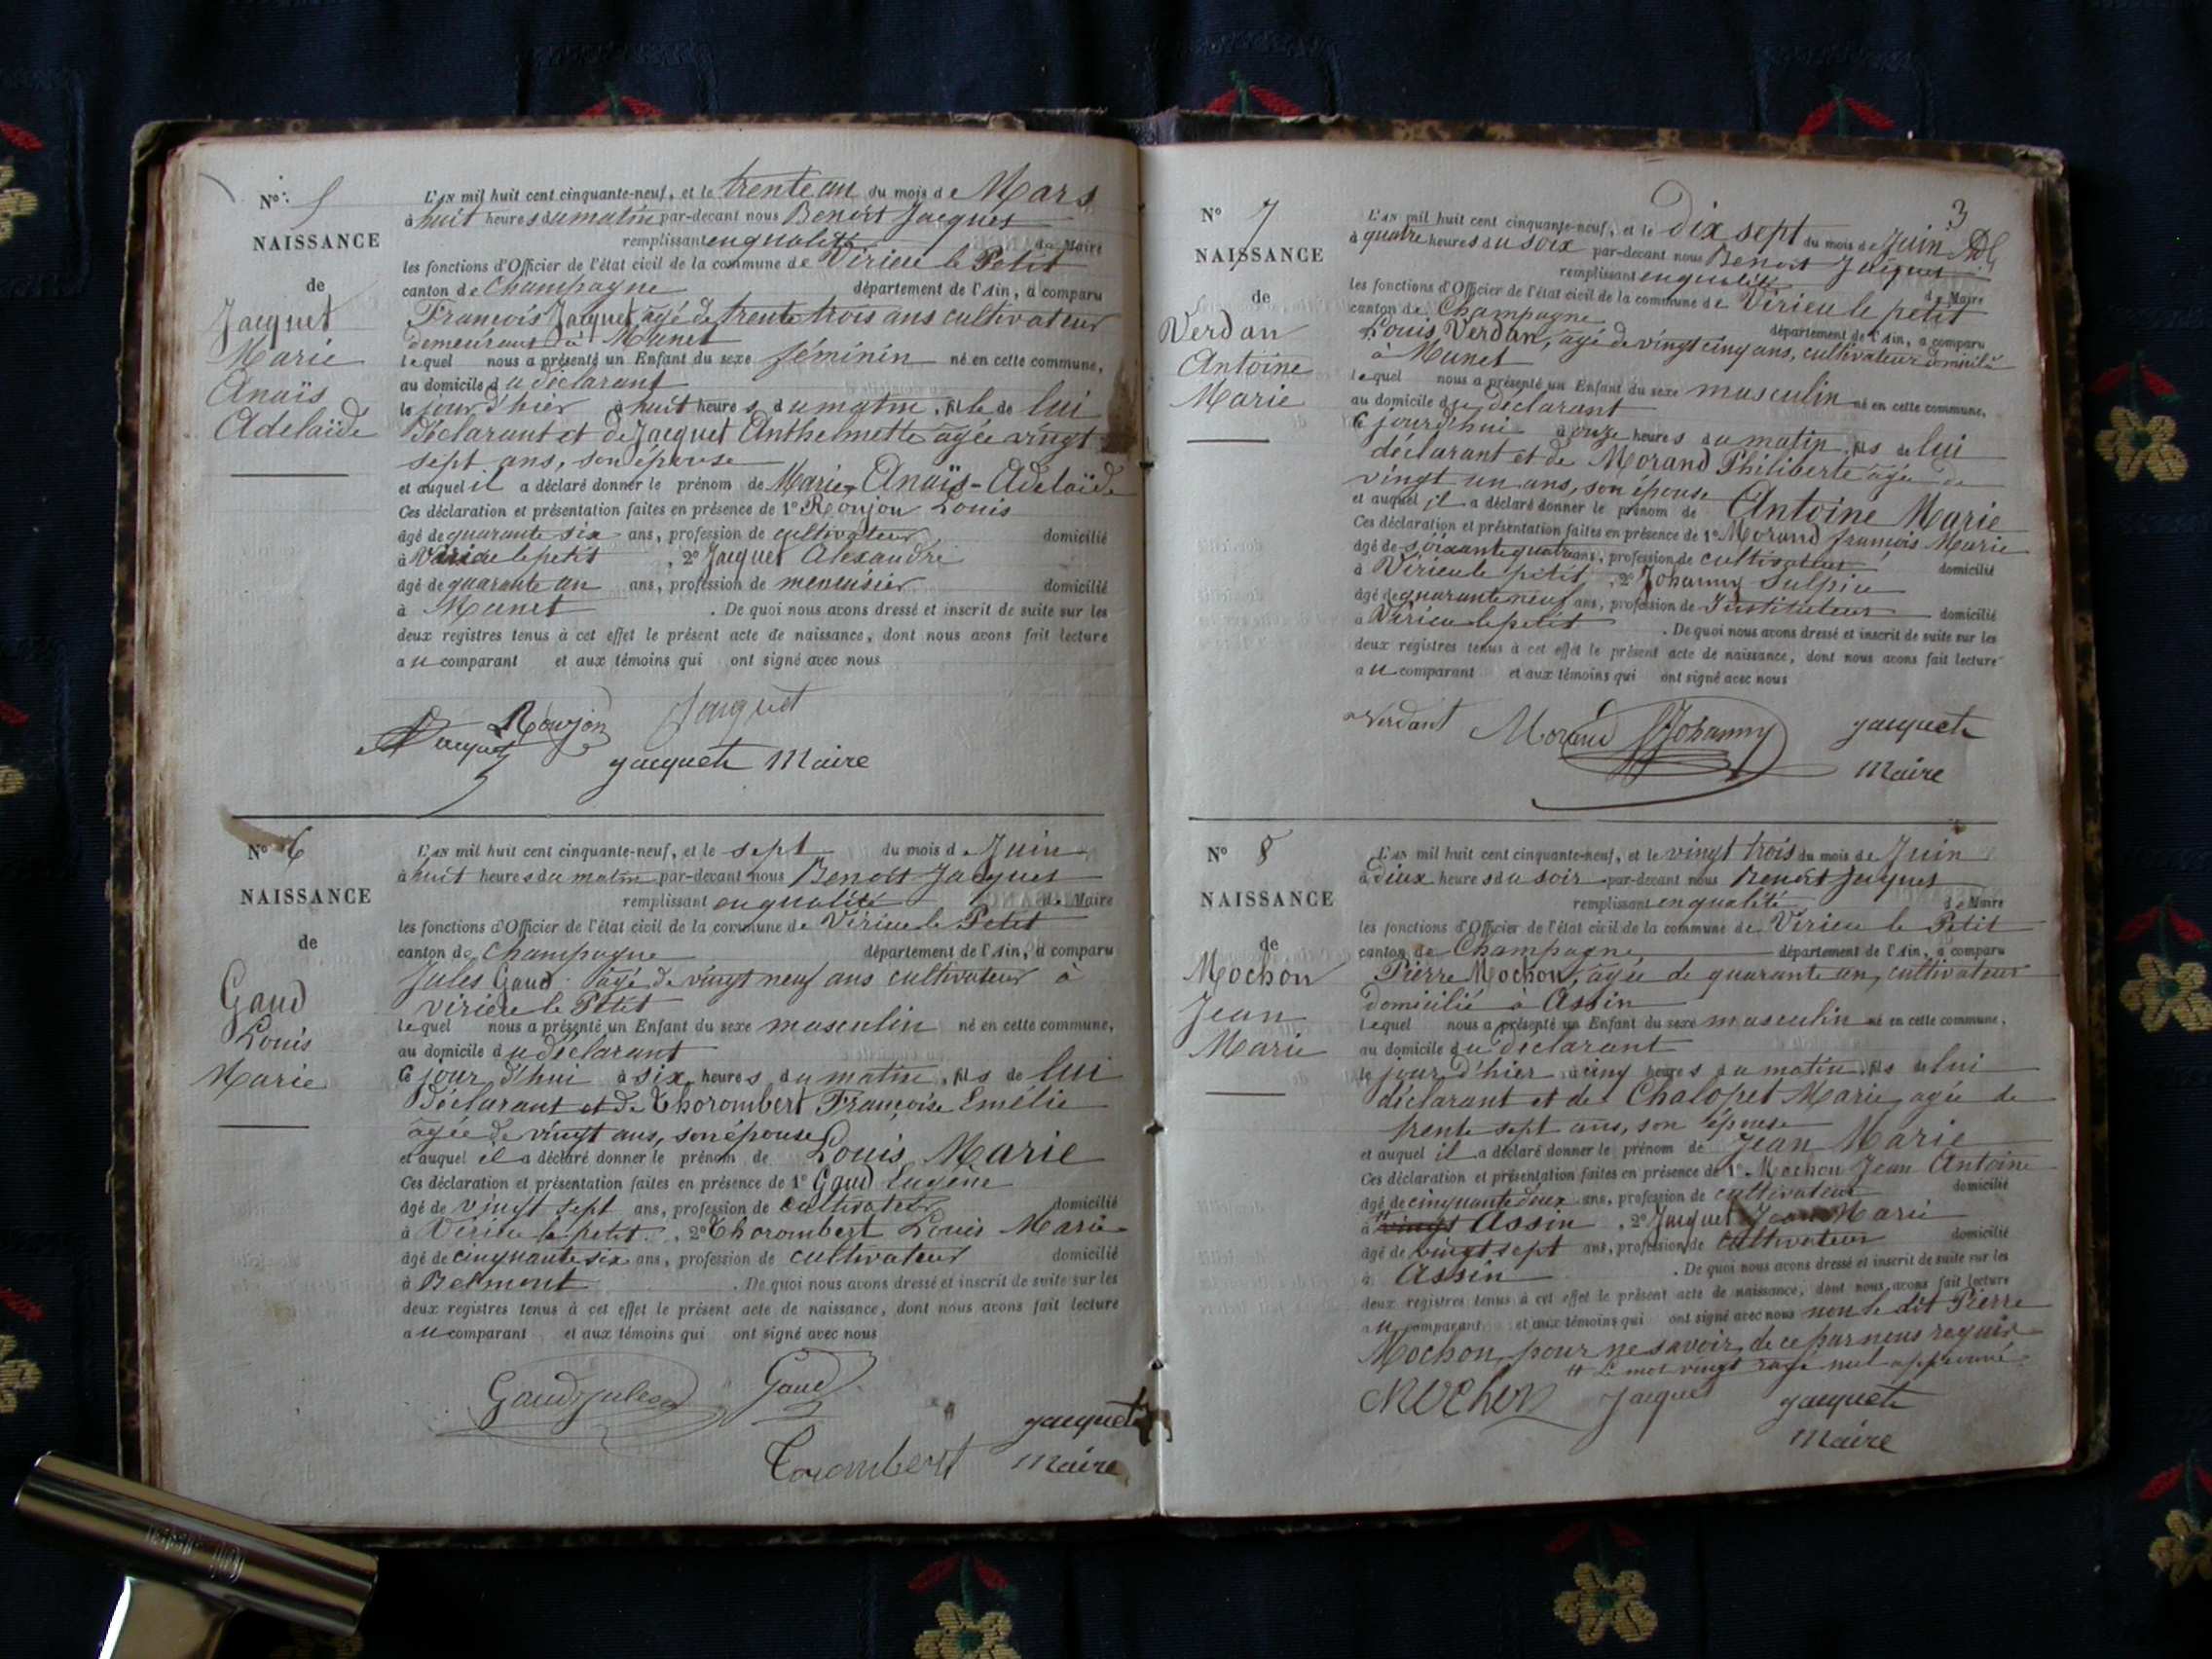 N° 5
NAISSANCE
de
Jacquet
Marie
Anaïs
Adelaïde
L'AN mil huit cent cinquante-neuf, et le trente un du mois de Mars
à huit heures du matin par-devant nous Benoit Jacquet
remplissant en qualité de Maire
les fonctions d'Officier de l'état civil de la commune de Virieu le Petit
canton de Champagne département de l'Ain, a comparu
François Jacquet agé de trente trois ans cultivateur
demeurant à Munet
lequel nous a présenté un Enfant du sexe féminin né en cette commune,
au domicile du déclarant
le jour d'hier à huit heures du matin, fille de lui
Déclarant et de Jacquet Anthelmette agée vingt
sept ans, son épouse
et auquel il a déclaré donner le prénom de Marie-Anaïs-Adelaïde
Ces déclaration et présentation faites en présence de 1° Roujon Louis
âgé de quarante six ans, profession de cultivateur domicilié
à Virieu le petit, 2° Jacquet Alexandre
âgé de quarante un ans, profession de menuisier domicilié
à Munet. De quoi nous avons dressé et inscrit de suite sur les
deux registres tenus à cet effet le présent acte de naissance, dont nous avons fait lecture
au comparant et aux témoins qui ont signé avec nous
Roujon Jacquet
Jacquet
Jacquet Maire
N° 6
NAISSANCE
de
Gaud
Louis
Marie
L'AN mil huit cent cinquante-neuf, et le sept du mois de Juin
à huit heures du matin par-devant nous Benoit Jacquet
remplissant en qualité de Maire
les fonctions d'Officier de l'état civil de la commune de Virieu le Petit
canton de Champagne département de l'Ain, a comparu
Jules Gaud agé de vingt neuf ans cultivateur à
Virieu le Petit
lequel nous a présenté un Enfant du sexe masculin né en cette commune,
au domicile du déclarant
ce jour d'hui à six heures du matin, fils de lui
Déclarant et de Thorombert Françoise Emélie
agée de vingt ans, son épouse
et auquel il a déclaré donner le prénom de Louis Marie
Ces déclaration et présentation faites en présence de 1° Gaud Eugène
âgé de vingt sept ans, profession de cultivateur domicilié
à Virieu le petit, 2° Thorombert Louis Marie
âgé de cinquante six ans, profession de cultivateur domicilié
à Belmont. De quoi nous avons dressé et inscrit de suite sur les
deux registres tenus à cet effet le présent acte de naissance, dont nous avons fait lecture
au comparant et aux témoins qui ont signé avec nous
Gaud Jules Gaud
Jacquet
Torombert Maire
3
N° 7
NAISSANCE
de
Verdan
Antoine
Marie
L'AN mil huit cent cinquante-neuf, et le Dix sept du mois de Juin
à quatre heures du soir par-devant nous Benoit Jacquet
remplissant en qualité de Maire
les fonctions d'Officier de l'état civil de la commune de Virieu le petit
canton de Champagne département de l'Ain, a comparu
Louis Verdan, agé de vingt cinq ans, cultivateur domicilié
à Munet
lequel nous a présenté un Enfant du sexe masculin né en cette commune,
au domicile du déclarant
ce jourd'hui à onze heures du matin, fils de lui
déclarant et de Morand Philiberte agée de
vingt un ans, son épouse
et auquel il a déclaré donner le prénom de Antoine Marie
Ces déclaration et présentation faites en présence de 1° Morand françois Marie
âgé de soixante quatre ans, profession de cultivateur domicilié
à Virieu le petit, 2° Johanny Sulpice
âgé de quarante neuf ans, profession de Instituteur domicilié
à Virieu le petit. De quoi nous avons dressé et inscrit de suite sur les
deux registres tenus à cet effet le présent acte de naissance, dont nous avons fait lecture
au comparant et aux témoins qui ont signé avec nous
Verdant Morand Johanny Jacquet
Maire
N° 8
NAISSANCE
de
Mochon
Jean
Marie
L'AN mil huit cent cinquante-neuf, et le vingt trois du mois de Juin
à deux heures du soir par-devant nous Benoit Jacquet
remplissant en qualité de Maire
les fonctions d'Officier de l'état civil de la commune de Virieu le Petit
canton de Champagne département de l'Ain, a comparu
Pierre Mochon, agée de quarante un, cultivateur
domicilié à Assin
lequel nous a présenté un Enfant du sexe masculin né en cette commune,
au domicile du déclarant
le jour d'hier à cinq heures du matin, fils de lui
déclarant et de Chalopet Marie, agée de
trente sept ans, son épouse
et auquel il a déclaré donner le prénom de Jean Marie
Ces déclaration et présentation faites en présence de 1° Mochon Jean Antoine
âgé de cinquante deux ans, profession de cultivateur domicilié
à vingt Assin, 2° Jacquet Jean Marie
âgé de vingt sept ans, profession de cultivateur domicilié
à Assin. De quoi nous avons dressé et inscrit de suite sur les
deux registres tenus à cet effet le présent acte de naissance, dont nous avons fait lecture
au comparant et aux témoins qui ont signé avec nous non le dit Pierre
Mochon, pour ne savoir, de ce par nous requis
Le mot vingt rayé nul approuvé
Mochon Jacquet Jacquet
Maire